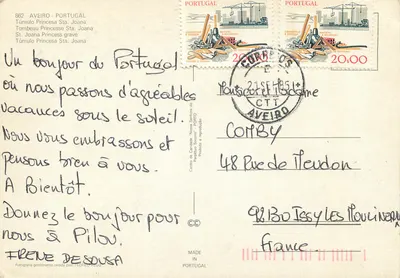 882 AVEIRO - PORTUGAL
Túmulo Princesa Sta. Joana
Tombeau Princesse Ste. Joana
St. Joana Princess grave
Túmulo Princesa Sta. Joana
PORTUGAL
PORTUGAL
20.00
CORREIOS
CTT
AVEIRO
Un bonjour du Portugal
où nous passons d'agréables
vacances sous le soleil.
Nous vous embrassons et
pensons bien à vous.
A Bientôt.
Donnez le bonjour pour
nous à Pilou.
IRENE DE SOUSA
Monsieur et Madame
COMBY
48 Rue de Meudon
92130 ISSY LES MOULINEAUX
France.
MADE IN
PORTUGAL